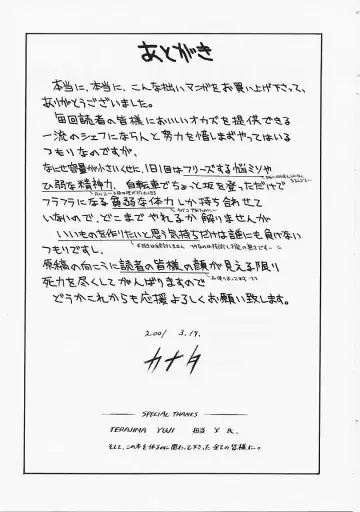 あとがき
本当に、本当に、こんな拙いマンガをお買い上げ下さって、
ありがとうございました。
毎回読者の皆様においしいオカズを提供できる
一流のシェフにならんと努力を惜しまずやってはいる
つもりなのですが、
なにせ容量が小さいくせに、1日1回はフリーズする脳ミソや
ひ弱な精神力、自転車でちょっと坂を登っただけで
フラフラになる貧弱な体力しか持ち合わせて
いないので、どこまでやれるか解りませんが
いいものを作りたいと思う気持ちだけは誰にも負けない
つもりですし、
原稿の向こうに読者の皆様の顔が見える限り
死力を尽くしてがんばりますので
どうかこれからも応援よろしくお願い致します。
2001 3.19.
カナタ
SPECIAL THANKS
TERAJIMA YUJI 担当 Y氏
そして、この本を作るのに関わって下さった全ての皆様に。